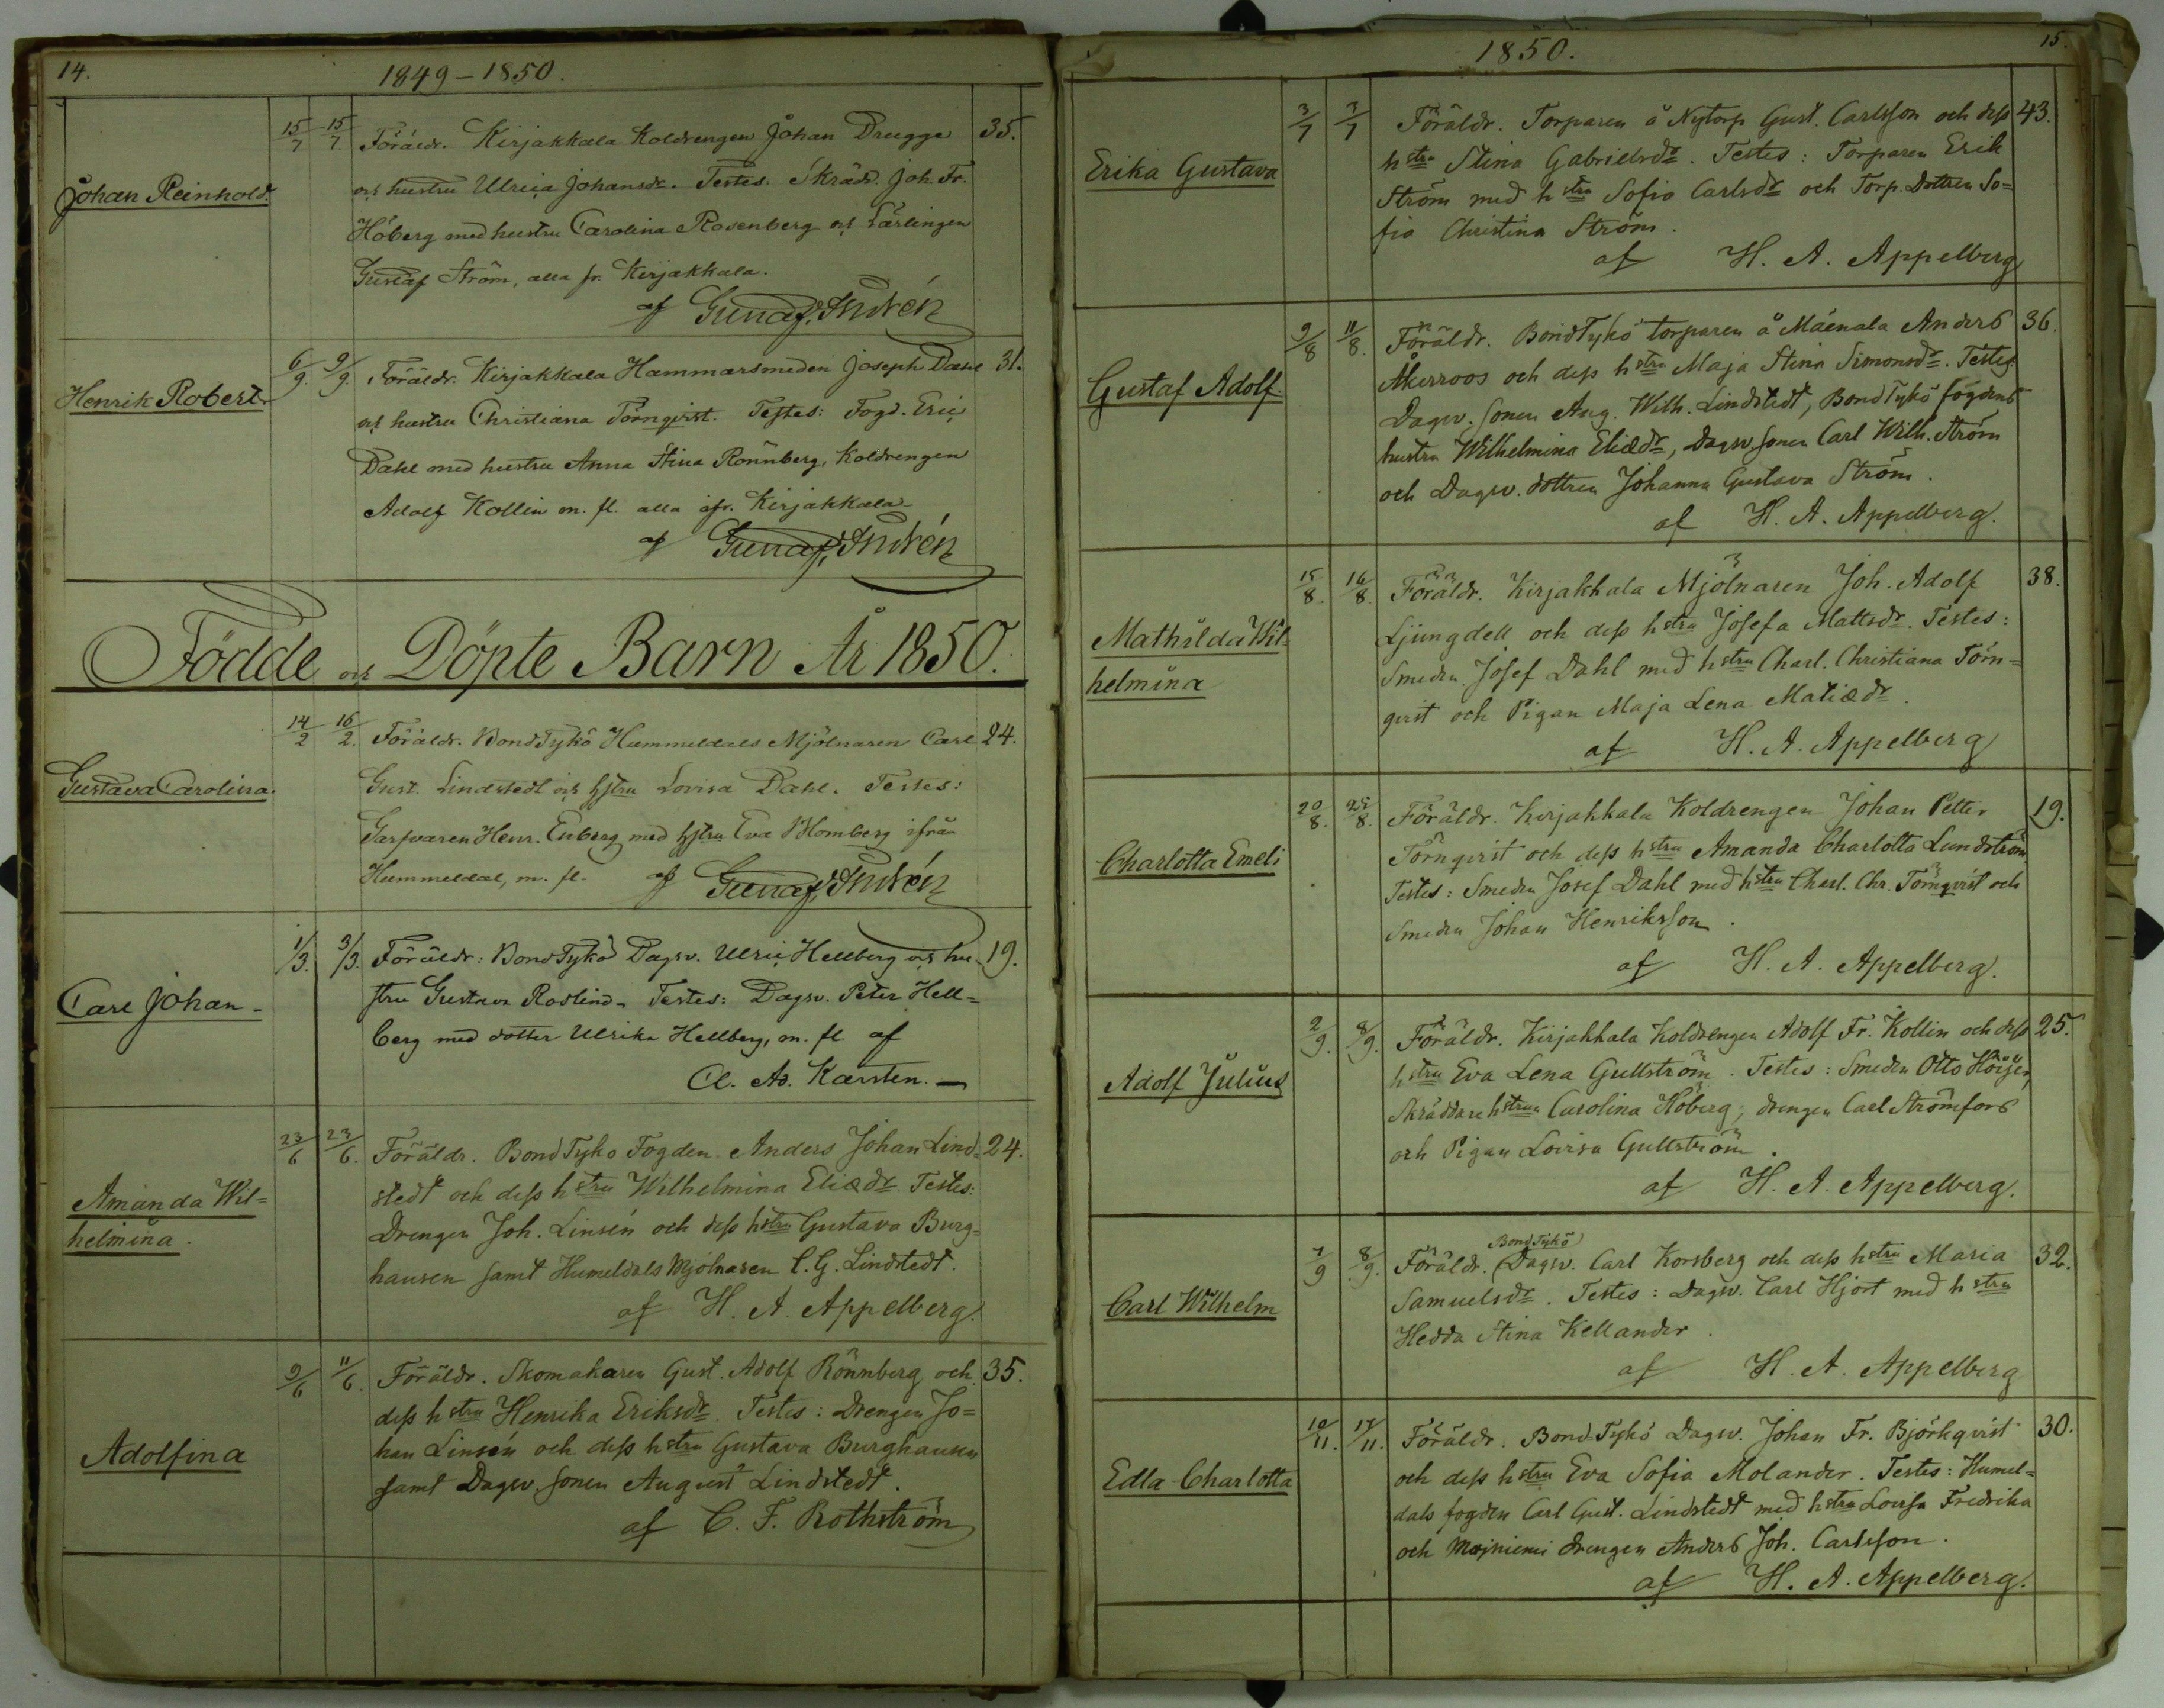 14.
1849-1850.
Johan Reinhold.
15/7 15/7. Föräldr. Kirjakkala Koldrengen Johan Drugge 35.
och hustru Ulrica Johansdr. Testes. Skrädd. Joh. Fr.
Höberg med hustru Carolina Rosenberg och Lärlingen
Gustaf Ström, alla fr. Kirjakkala.
af Gustaf Andrén
Henrik Robert.
6/9. 9/9. Föräldr. Kirjakkala Hammarsmeden Joseph Dahl 31.
och hustru Christiana Törnqvist. Testes: Fogd. Eric
Dahl med hustru Anna Stina Rönnberg, Koldrengen
Adolf Kollin m. fl. alla ifr. Kirjakkala
af Gustaf Andrén
Födde och Döpte Barn År 1850.
Gustava Carolina.
14/2 16/2. Föräldr. BondTykö Hummeldals Mjölnaren Carl 24.
Gust. Lindstedt och hstru Lovisa Dahl. Testes:
Garfvaren Henr. Enberg med hstru Eva Blomberg ifrån
Hummeldal, m. fl. af Gustaf Andrén
Carl Johan
1/3. 3/3. Föräldr: BondTykö Dagsv. Ulric Hellberg och hu- 19.
stru Gustava Roslind. Testes: Dagsv. Peter Hell=
berg med dotter Ulrika Hellberg, m. fl. af
Cl. Ad. Karsten.
Amanda Wil=
helmina.
23/6 23/6. Föräldr. BondTyko Fogden Anders Johan Lind= 24.
stedt och dess hstru Wilhelmina Eliædr. Testes:
Drengen Joh. Linsén och dess hstru Gustava Burg=
hausen samt Humeldals Mjölnaren C. G. Lindstedt.
af H. A. Appelberg.
Adolfina
9/6 11/6. Föräldr. Skomakaren Gust. Adolf Rönnberg och 35.
dess hstru Henrika Eriksdr. Testes: Drengen Jo=
han Linsén och dess hstru Gustava Burghausen
samt Dagsv. sonen August Lindstedt.
af C. F. Rothström
1850.
15.
Erika Gustava
3/7 7/7 Föräldr. Torparen å Nytorp Gust. Carlsson och dess 43.
hstru Stina Gabrielsdr. Testes: Torparen Erik
Ström med hstru Sofia Carlsdr och Torp. Dottren So=
fia Christina Ström.
af H. A. Appelberg
Gustaf Adolf
9/8 11/8. Föräldr. BondTykö torparen å Mäenala Anders 36.
Åkerroos och dess hstru Maja Stina Simonsdr. Testes:
Dagsv. sonen Aug. Wilh. Lindstedt, BondTykö fogdens
hustru Wilhelmina Eliædr, Dagsv. sonen Carl Wilh. Ström
och Dagsv. dottren Johanna Gustava Ström.
af H. A. Appelberg.
Mathilda Wil=
helmina
15/8. 16/8. Föräldr. Kirjakkala Mjölnaren Joh. Adolf 38.
Ljungdell och dess hstru Josefa Mattsdr. Testes:
Smeden Josef Dahl med hstru Charl. Christiana Törn=
qvist och Pigan Maja Lena Matiædr.
af H. A. Appelberg
Charlotta Emeli
20/8. 25/8. Föräldr. Kirjakkala Koldrengen Johan Petter 19.
Törnqvist och dess hstru Amanda Charlotta Lundström
Testes: Smeden Josef Dahl med hstru Charl. Chr. Törnqvist och
Smeden Johan Henriksson.
af H. A. Appelberg.
Adolf Julius
2/9. 8/9. Föräldr. Kirjakkala Koldrengen Adolf Fr. Kollin och dess 25.
hstru Eva Lena Gullström. Testes: Smeden Otto Höijer,
Skräddare hstrun Carolina Höberg, drengen Carl Strömfors
och Pigan Lovisa Gullström.
af H. A. Appelberg.
Carl Wilhelm
7/9 8/9. Föräldr. BondTykö Dagsv. Carl Korsberg och dess hstru Maria 32.
Samuelsdr. Testes: Dagsv. Carl Hjort med hstru
Hedda Stina Kellander.
af H. A. Appelberg
Edla Charlotta
10/11. 17/11. Föräldr. BondTykö Dagsv. Johan Fr. Björkqvist 30.
och dess hstru Eva Sofia Molander. Testes: Humel=
dals fogden Carl Gust. Lindstedt med hstru Lovisa Fredrika
och Mojniemi drengen Anders Joh. Carlsson.
af H. A. Appelberg.